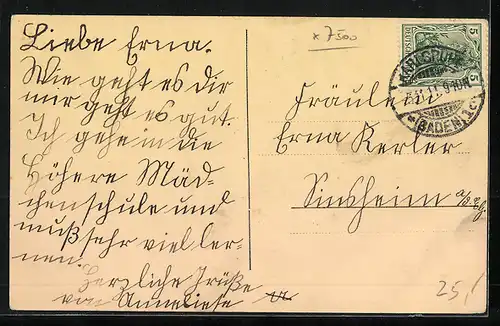 Liebe Erna.
Wie geht es dir
mir geht es gut.
Ich gehe in die
Höhere Mäd-
chenschule und
muß sehr viel ler-
nen.
Herzliche Grüße
von Anneliese
x 7500
5 5
KARLSRUHE
11. 9-10N
(BADEN) 1
Fräulein
Erna Kerler
Sinsheim a/d.
25,/